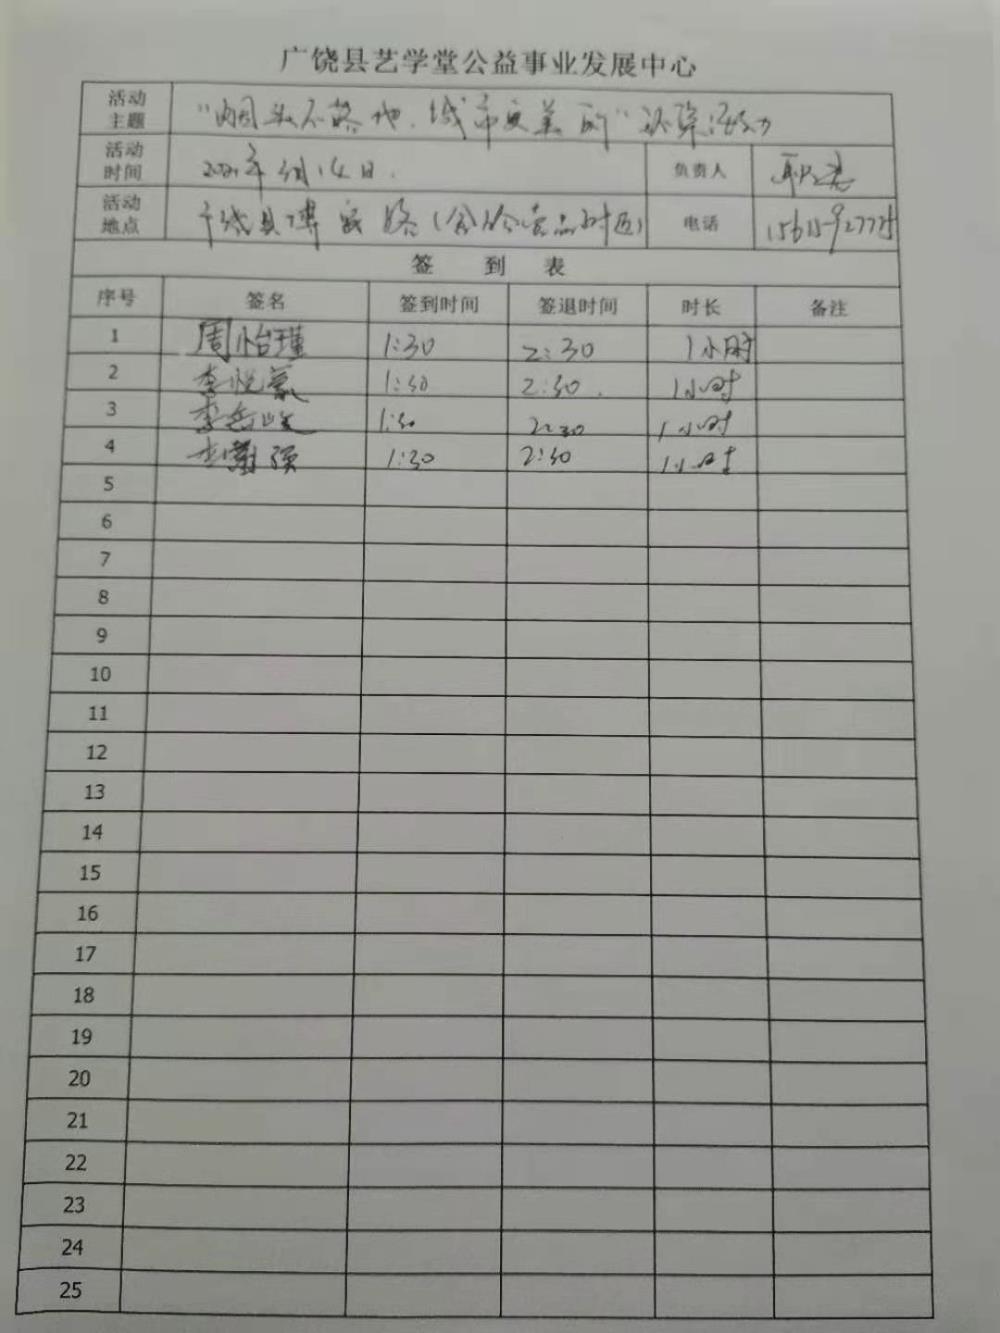 广饶县艺学堂公益事业发展中心
活动主题 "烟头不落地，城市更美丽"
活动时间 2021年 月14日. 负责人
活动地点 电话
签 到 表
序号 签名 签到时间 签退时间 时长 备注
1 周怡瑾 1:30 2:30 1小时
2 李悦 1:30 2:30. 1小时
3 李 1:30 2:30 1小时
4 李 强 1:30 2:30 1小时
5
6
7
8
9
10
11
12
13
14
15
16
17
18
19
20
21
22
23
24
25